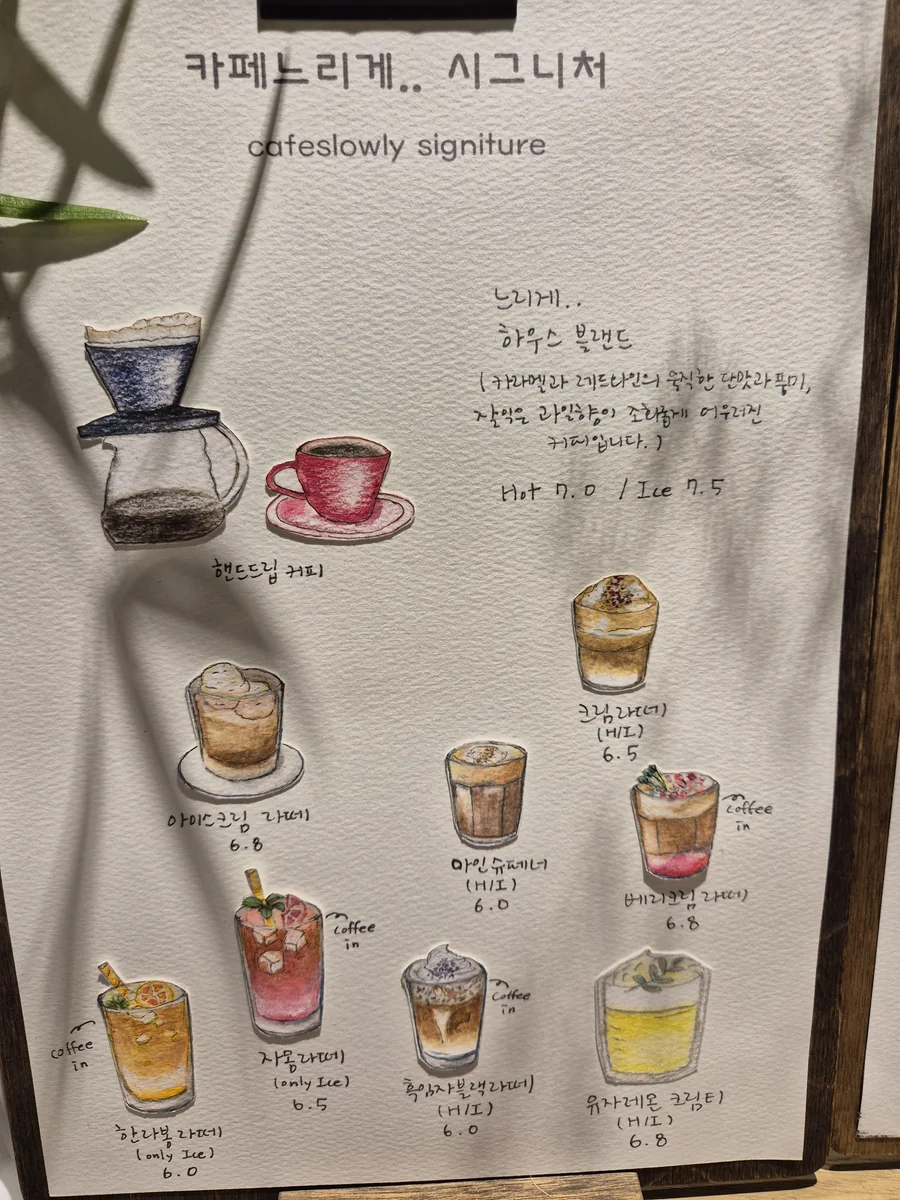 카페느리게.. 시그니처
cafeslowly signiture
느리게..
하우스 블랜드
(카라멜과 레드와인의 묵직한 단맛과 풍미,
잘익은 과일향이 조화롭게 어우러진
커피입니다.)
Hot 7.0 / Ice 7.5
핸드드립 커피
크림라떼
(H/I)
6.5
아이스크림 라떼
6.8
아인슈페너
(H/I)
6.0
coffee
in
베리크림라떼
6.8
coffee
in
자몽라떼
(only Ice)
6.5
coffee
in
한라봉라떼
(only Ice)
6.0
coffee
in
흑임자블랙라떼
(H/I)
6.0
유자레몬 크림티
(H/I)
6.8